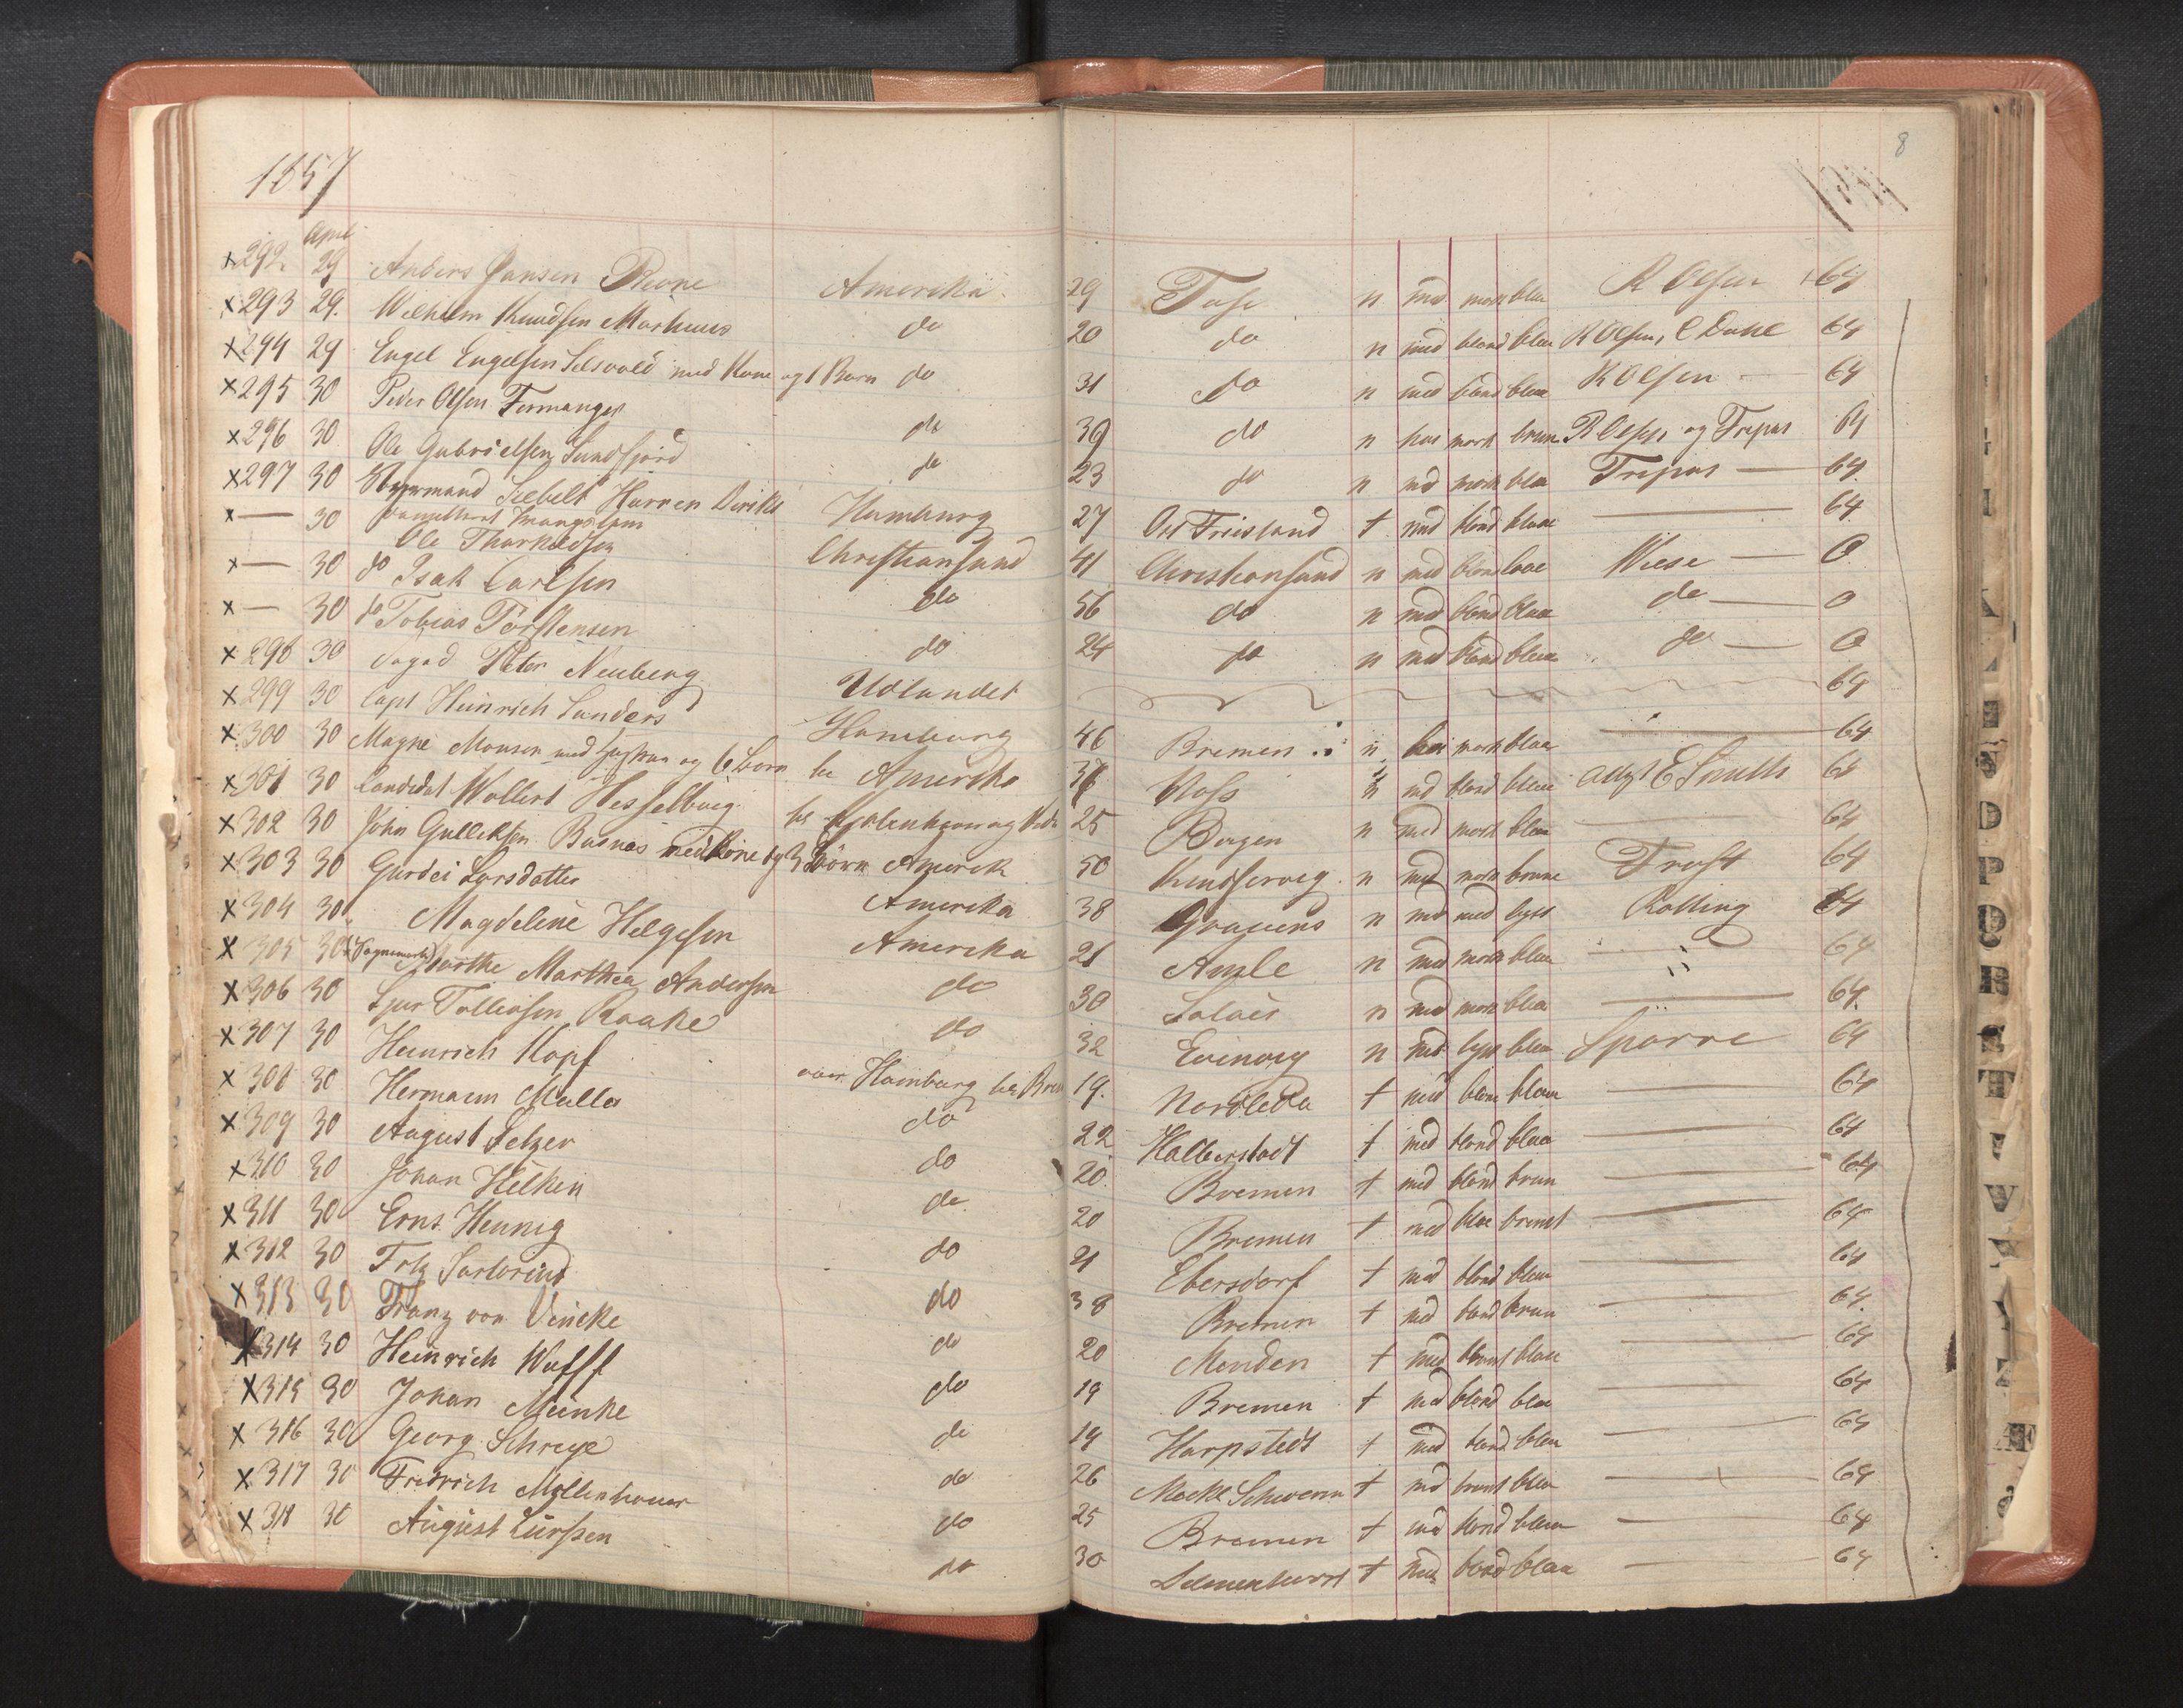 1857
8
April
x292 29 Anders Jansen Amerika 29 n med mork blaa R Olsen 64
x293 29. Wilhelm Knudsen do 20 do n med blond blaa R Olsen, C Dahl 64
x294 29 Engel Engelsen med Kone og 1 Barn do 31 do n med blond blaa R Olsen 64
x295 30 Peder Olsen do 39 do n høi mork brun R Olsen og 64
x296 30 Ole Gabrielsen Sundfjord do 23 do n med mork blaa 64
x297 30 Styrmand Siebelt Harren Dirks Hamburg 27 Ost Friesland t med blond blaa 64
x— 30 Ole Christiansund 41 Christiansund n med blond blaa Wiese — 0
x— 30 do Isak Carlsen do 56 do n med blond blaa do — 0
x— 30 do Tobias Törstensen do 24 do n med blond blaa do — 0
x298 30 Peter Neuberg Udlandet 64
x299 30 Capt Heinrich Sanders Hamburg 46 Bremen n høi mork blaa 64
x300 30 Magne Monsen med Hustru og 6 Børn til Amerika Voss n med blond blaa E Smith 64
x301 30 Candidat Wollert Hesselberg til Kjøbenhavn og 25 Bergen n med mork blaa 64
x302 30 John Gulleksen Busnes med Kone og 3 Börn Amerik 50 n med mork brune Trost 64
x303 30 Gurdei Larsdatter Amerika 38 Gravens n med med lyst Rolling 64
x304 30 Magdeline Helgesen Amerika 21 Amle n med mork blaa 64
x305 30 Marthe Marthea Andersen do 30 n med mork blaa 64.
x306 30 Sjur Tollefsen Raake do 32 Evinvig n med lyst blaa Sparre 64
x307 30 Heinrich Kopf over Hamburg til Brem 19. Nordleda t med blond blaa 64
x308 30 Hermann Muller do 22 Halberstadt t med blond blaa 64
x309 30 August Selzer do 20. Bremen t med blond brun 64
x310 30 Johan Helken do 20 Bremen t med blaa brunt 64
x311 30 Erns Hennig do 21 Ebersdorf t med blond blaa 64
x312 30 Fritz Sartorius do 38 Bremen t med blond brun 64.
x313 30 Franz von Vincke do 20 Menden t med blond blaa 64
x314 30 Heinrich Wulff do 19 Bremen t med blond blaa 64
x315 30 Johan Meinke do 19 Harpstedt t med blond blaa 64
x316 30 Georg Schreye do 26 Meckl Schwerin t med brunt blaa 64
x317 30 Fredrich Mollenhauer do 25 Bremen t med blond blaa 64
x318 30 August Lürssen do 30 Delmenhorst t med blond blaa 64